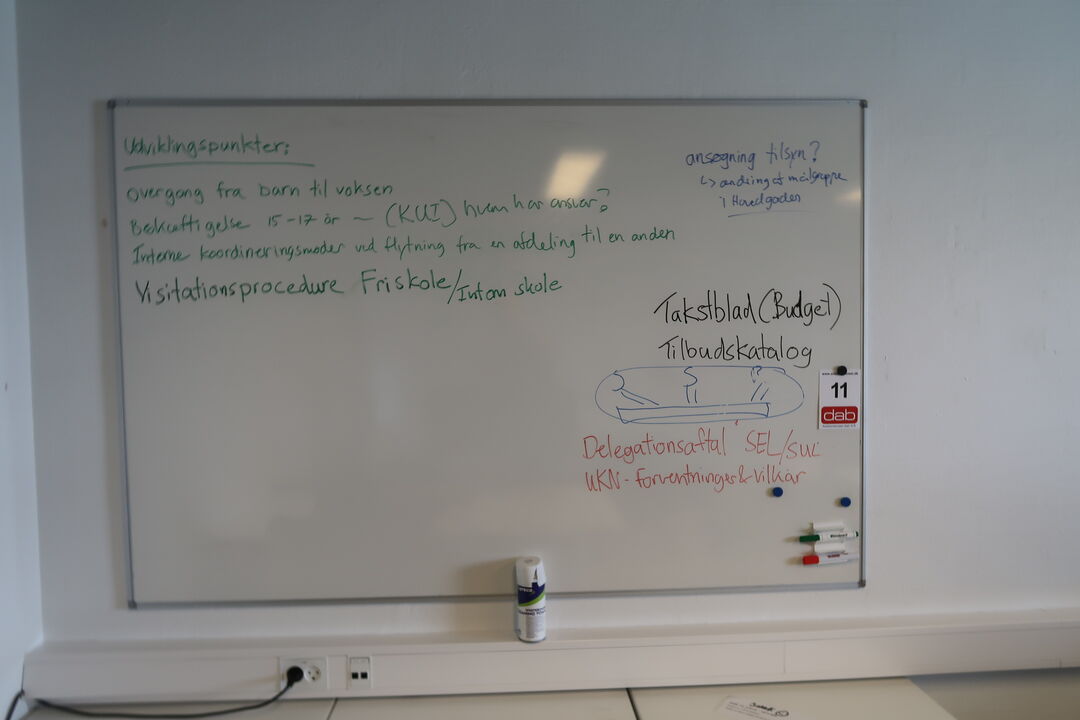 Udviklingspunkter:
Overgang fra barn til voksen
Beskæftigelse 15-17 år ~ (KUI) hvem har ansvar?
Interne koordineringsmøder ved flytning fra en afdeling til en anden
Visitationsprocedure Friskole/Intern skole
ansøgning tilsyn?
↳ ændring af målgruppe
i Hovedgaden
Takstblad (Budget)
Tilbudskatalog
11
dab
Delegationsaftal SEL/SUL
UKN - forventninger & vilkår